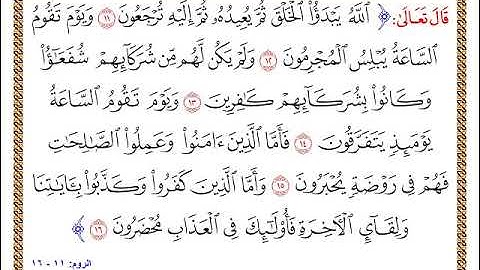 قَالَ تَعَالَىٰ: ﴿ ٱللَّهُ يَبْدَؤُا۟ ٱلْخَلْقَ ثُمَّ يُعِيدُهُۥ ثُمَّ إِلَيْهِ تُرْجَعُونَ ١١ وَيَوْمَ تَقُومُ
ٱلسَّاعَةُ يُبْلِسُ ٱلْمُجْرِمُونَ ١٢ وَلَمْ يَكُن لَّهُم مِّن شُرَكَآئِهِمْ شُفَعَـٰٓؤُا۟
وَكَانُوا۟ بِشُرَكَآئِهِمْ كَـٰفِرِينَ ١٣ وَيَوْمَ تَقُومُ ٱلسَّاعَةُ
يَوْمَئِذٍ يَتَفَرَّقُونَ ١٤ فَأَمَّا ٱلَّذِينَ ءَامَنُوا۟ وَعَمِلُوا۟ ٱلصَّـٰلِحَـٰتِ
فَهُمْ فِى رَوْضَةٍ يُحْبَرُونَ ١٥ وَأَمَّا ٱلَّذِينَ كَفَرُوا۟ وَكَذَّبُوا۟ بِـَٔايَـٰتِنَا
وَلِقَآئِ ٱلْـَٔاخِرَةِ فَأُو۟لَـٰٓئِكَ فِى ٱلْعَذَابِ مُحْضَرُونَ ١٦ ﴾
الروم: ١١ - ١٦